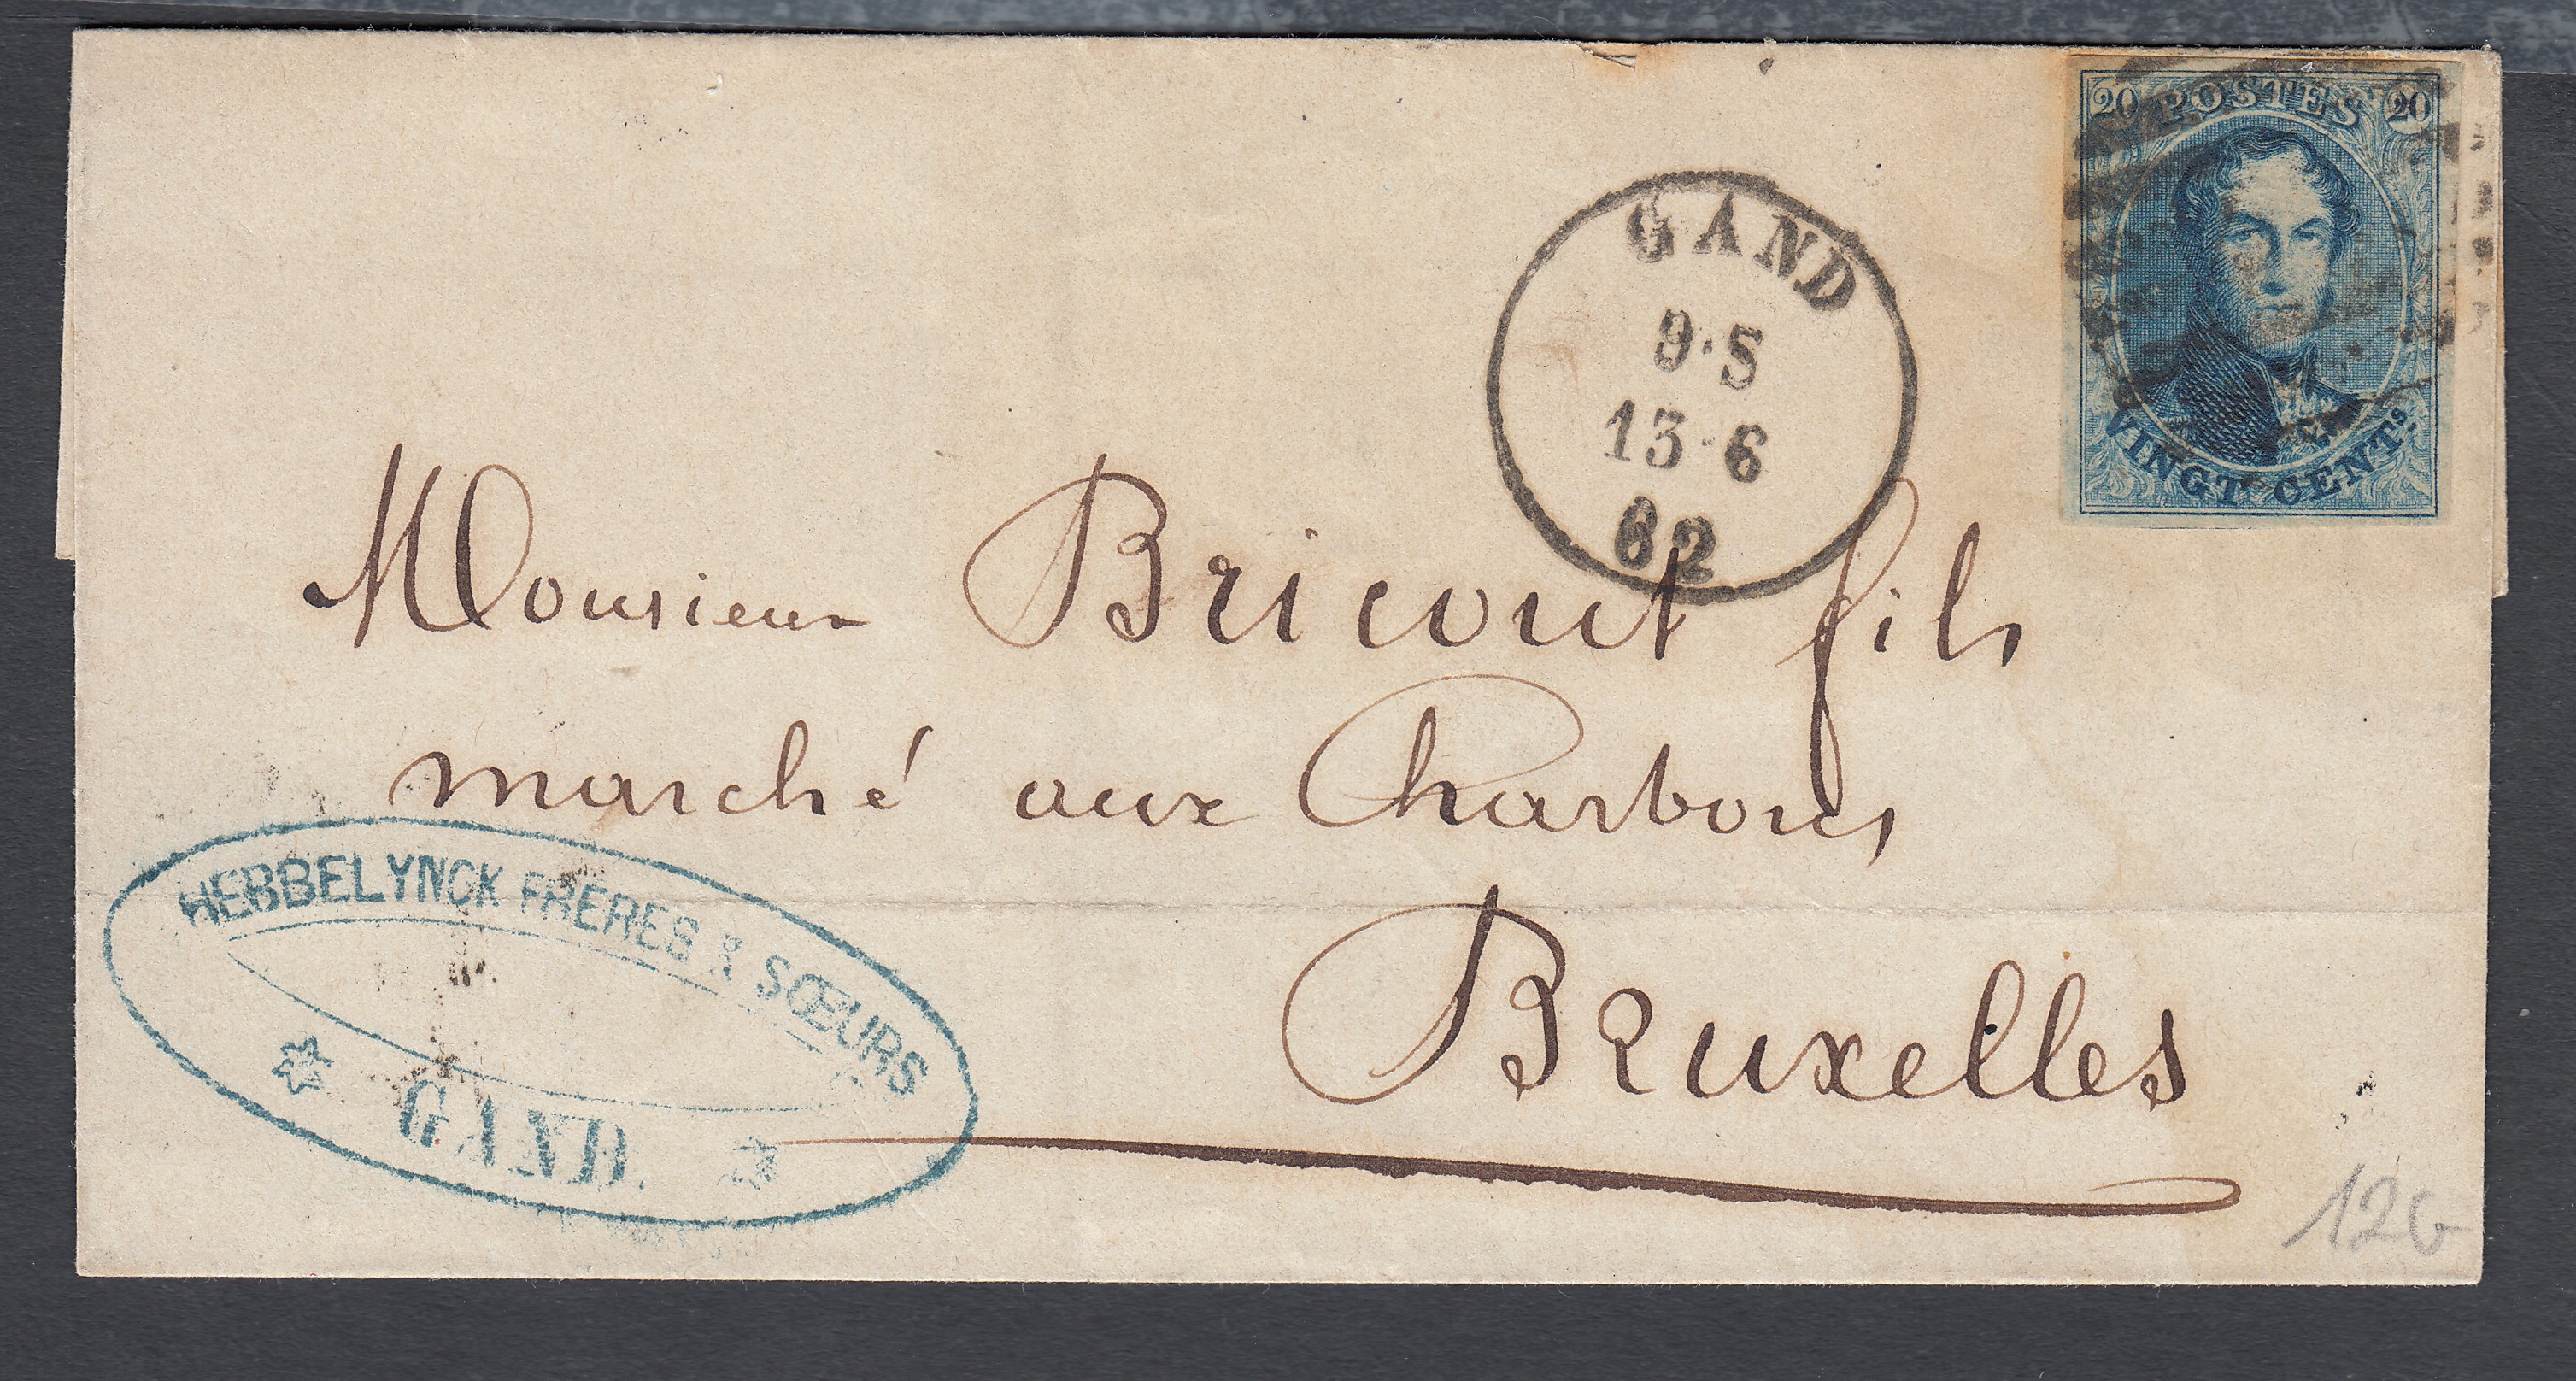 20 POSTES 20
VINGT CENTS.
GAND
9·S
13-6
62
Monsieur Bricout fils
marché aux Charbons
Bruxelles
HEBBELYNCK FRERES & SŒURS
GAND.